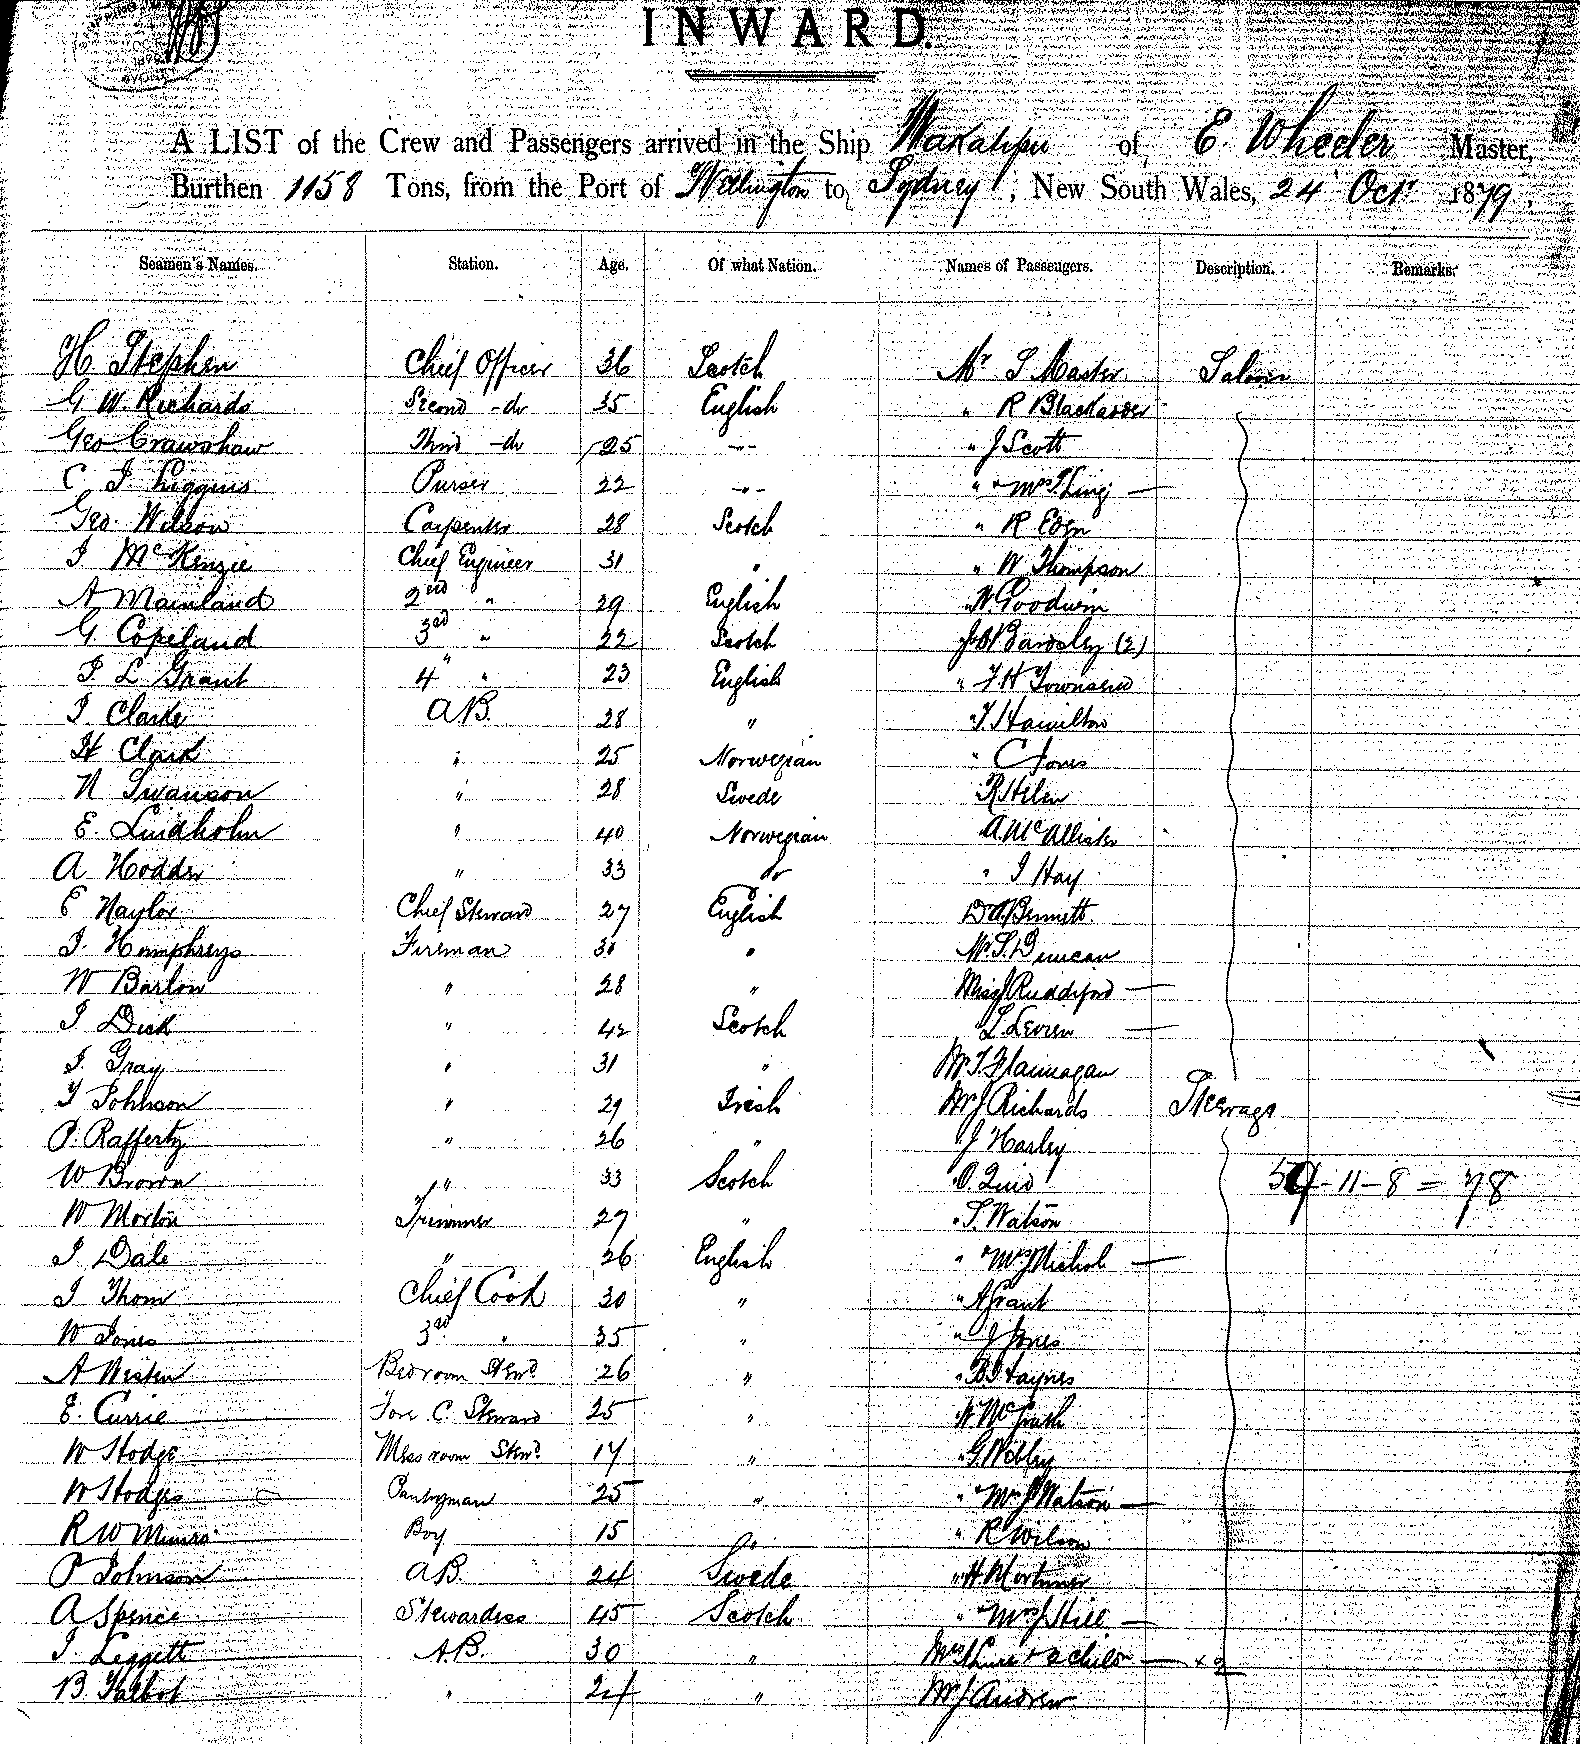 INWARD.
A LIST of the Crew and Passengers arrived in the Ship Wakatipu of E. Wheeler Master,
Burthen 1158 Tons, from the Port of Wellington to Sydney, New South Wales, 24 Octr 1879.
Seamen's Names. Station. Age. Of what Nation. Names of Passengers. Description. Remarks.
H. Stephen Chief Officer 36 Scotch Mr S Master Saloon
G W. Richards Second -do 35 English " R Blackadder
Geo Crawshaw Third -do 25 -"- " J Scott
C I Higgins Purser 22 -"- " " Mrs King —
Geo. Wilson Carpenter 28 Scotch " R Eden
J McKenzie Chief Engineer 31 " " W Thompson
A Mainland 2nd " 29 English " W. Goodwin
G Copeland 3rd " 22 Scotch Bardsley (2)
J L Grant 4" " 23 English " F H Townsend
J. Clarke A.B. 28 " " T Hamilton
H Clark " 25 Norwegian " C Jones
N Swanson " 28 Swede R Helen
E. Lindholm " 40 Norwegian A. McAllister
A Hodder " 33 do " J Hay
E Naylor Chief Steward 27 English D A Bennett
J. Homphreys Fireman 30 " Mr S. Duncan
W Barton " 28 " Miss Ruddiford —
J Dick " 42 Scotch " L Levien —
J. Gray " 31 " Mr T Flannagan
T Johnson " 29 Irish Mr J Richards Steerage
P. Rafferty " 26 " " J Harley
W Brown " 33 Scotch " O. Quid 59-11-8 = 78
W Morton Trimmer 27 " " T. Watson
J Dale " 26 English " " Mrs J Nichol —
J Thom Chief Cook 30 " " A Grant
W Jones 3rd " 35 " " J Jones
A Westen Bedroom Stewd 26 " " B Haynes
E. Currie Fore C. Steward 25 " " W McGrath
W Hodge Messroom Stewd. 17 " " G Webley
W Hodges Pantryman 25 " " " Mrs J Watson —
R W Munro Boy 15 " " R Wilson
P Johnson A.B. 24 Swede " H Mortimer
A Spence Stewardess 45 Scotch " " Mrs J Hill —
J Leggett A.B. 30 " Mrs + 2 Children — + 2
B. Talbot " 24 " Mr J Andrew